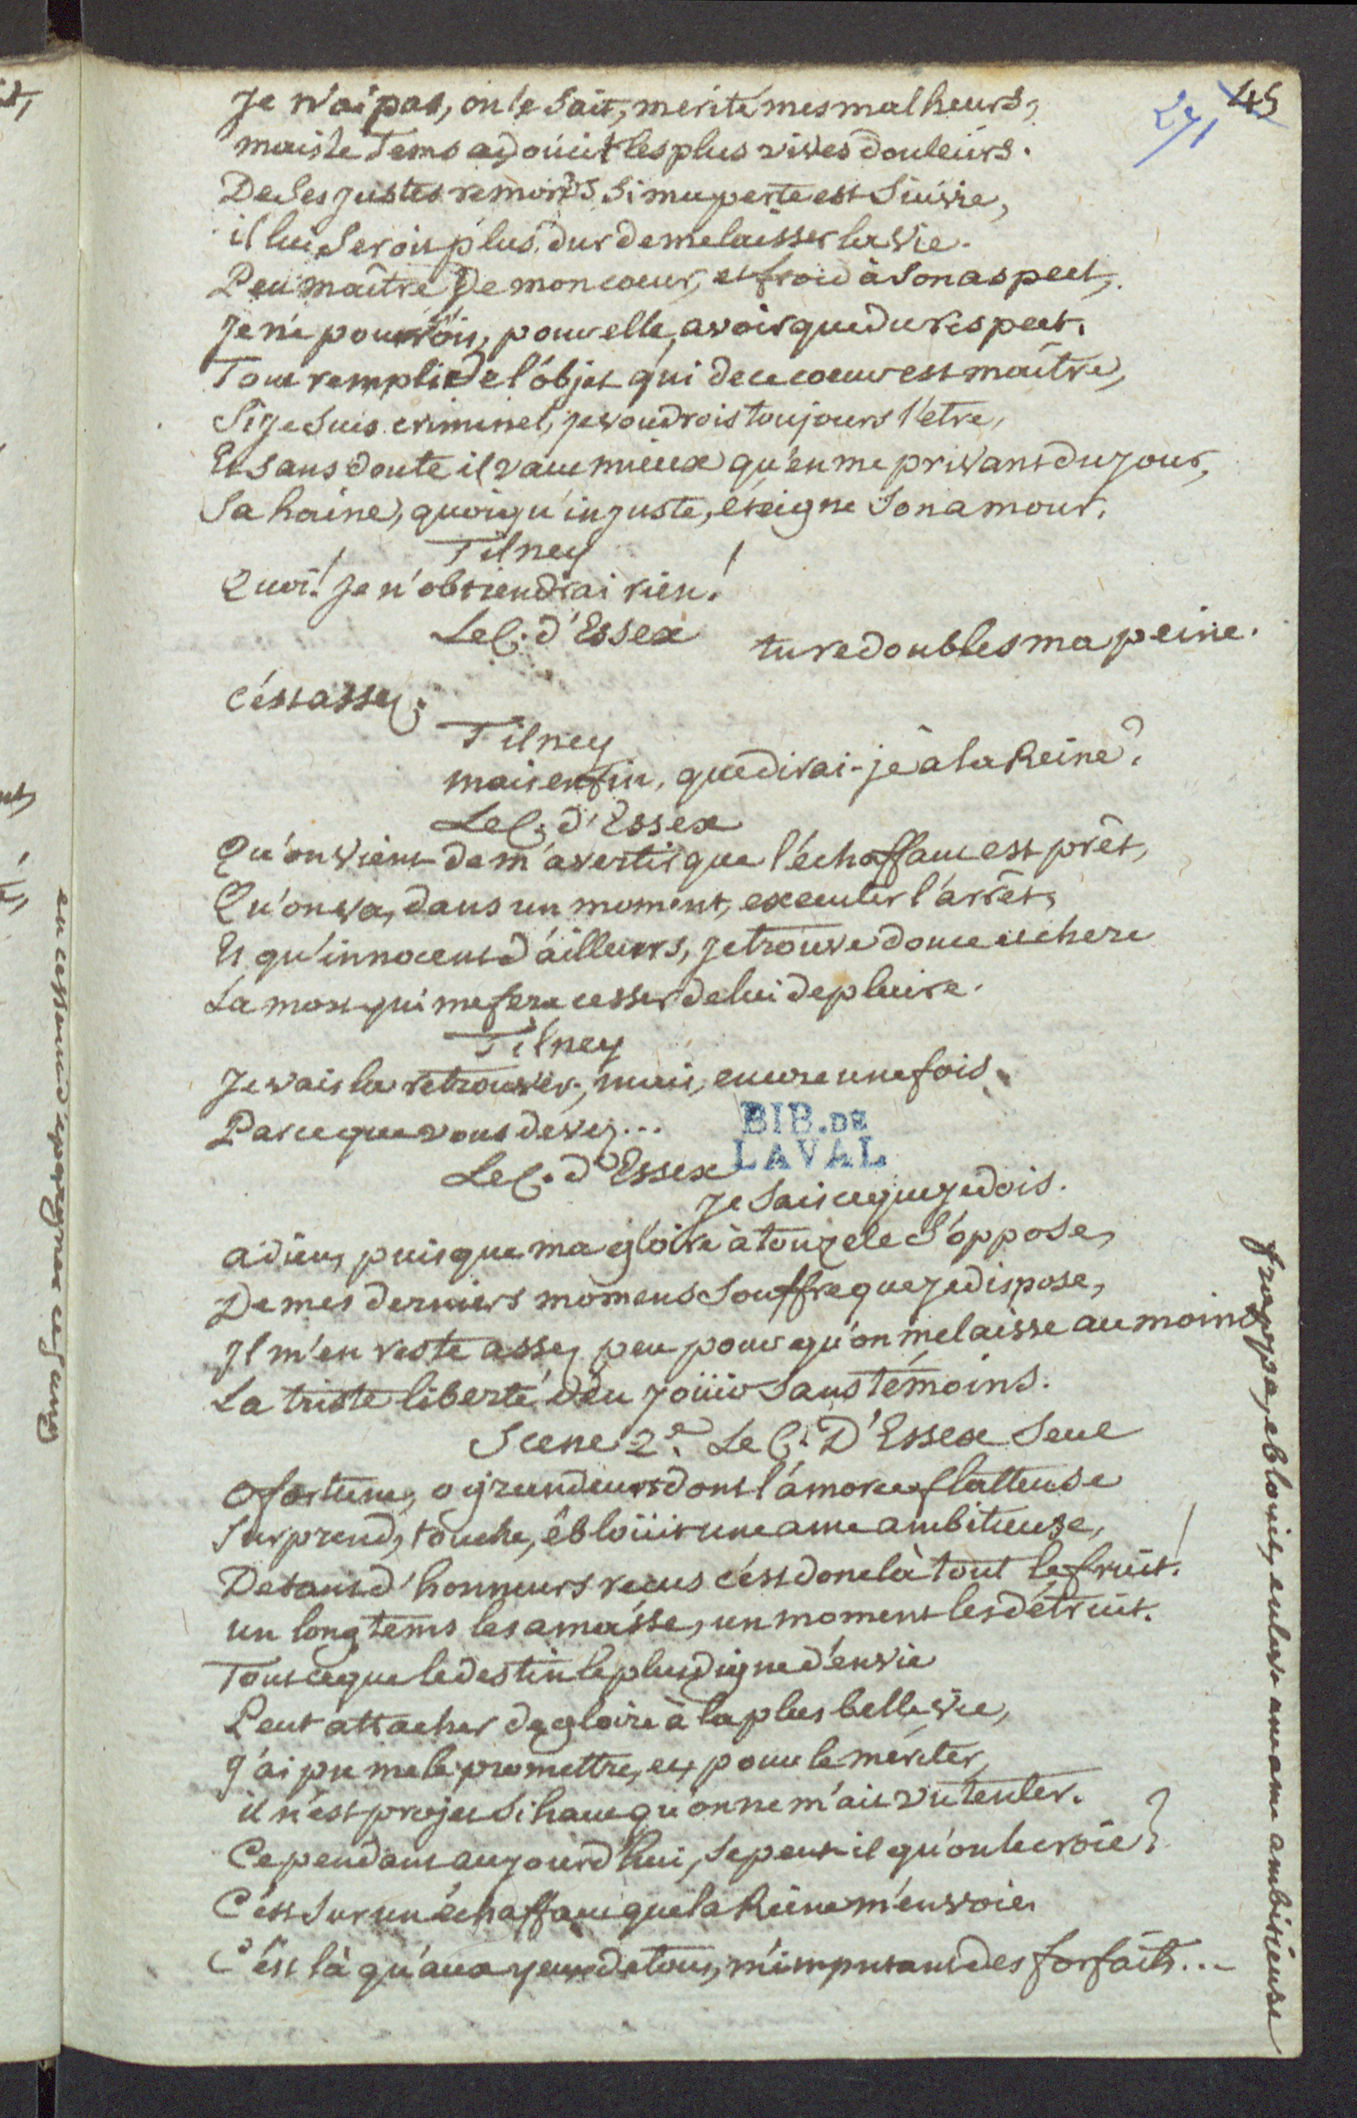 45
27
Je n'ai pas, on le sait, merité mes malheurs,
mais le Tems adoucit les plus vives douleurs.
De ses justes remords si ma perte est suivie,
il lui seroit plus dur de me laisser la vie.
Peu maître de mon coeur, et froid à son aspect,
Je ne pourrois, pour elle, avoir que du respect.
Tout rempli de l'objet qui de ce coeur est maître,
Si je suis criminel, je voudrois toujours l'etre,
Et sans doute il vaut mieux qu'en me privant du jour,
Sa haine, quoiqu'injuste, éteigne son amour.
Tilney
Quoi! Je n'obtiendrai rien!
Le C. d'Essex
tu redoubles ma peine.
C'ést assez.
Tilney
mais enfin, que dirai-je à la Reine?
Le C. d'Essex
Qu'on vient de m'avertir que l'échaffaut est prêt,
Qu'on va, dans un moment, executer l'arrêt,
Et qu'innocent d'ailleurs, je trouve douce et chere
La mort qui me fera cesser de lui deplaire.
Tilney
Je vais la retrouver; mais, encore une fois.
Par ce que vous devez...
BIB. DE
LAVAL
Le C. d'Essex
Je sais ce que je dois.
adieu, puisque ma gloire à ton zele s'oppose,
De mes derniers momens souffre que je dispose,
Il m'en reste assez peu pour qu'on me laisse au moins
La triste liberté d'en joüir sans témoins.
Scene 2e. Le C. D'Essex seul
O fortune, o grandeurs dont l'amorce flatteuse
Surprend, touche, éblöüit une ame ambitieuse,
De tant d'honneurs reçus c'ést donc là tout le fruit!
un long tems les amasse, un moment les détruit.
Tout ce que le destin le plus digne d'envie
Peut attacher de gloire à la plus belle vie,
J'ai pu me le promettre, et, pour le mériter,
il n'est projet si haut qu'on ne m'ait vu tenter.
Cependant aujourd'hui, se peut-il qu'on le croie?
C'ést sur un échaffaut que la Reine m'envoie.
C'ést là qu'aux yeux de tous, m'imputant des forfaits...
frappe, eblouit, enleve une ame ambitieuse
en cessant d'epargner ce sang